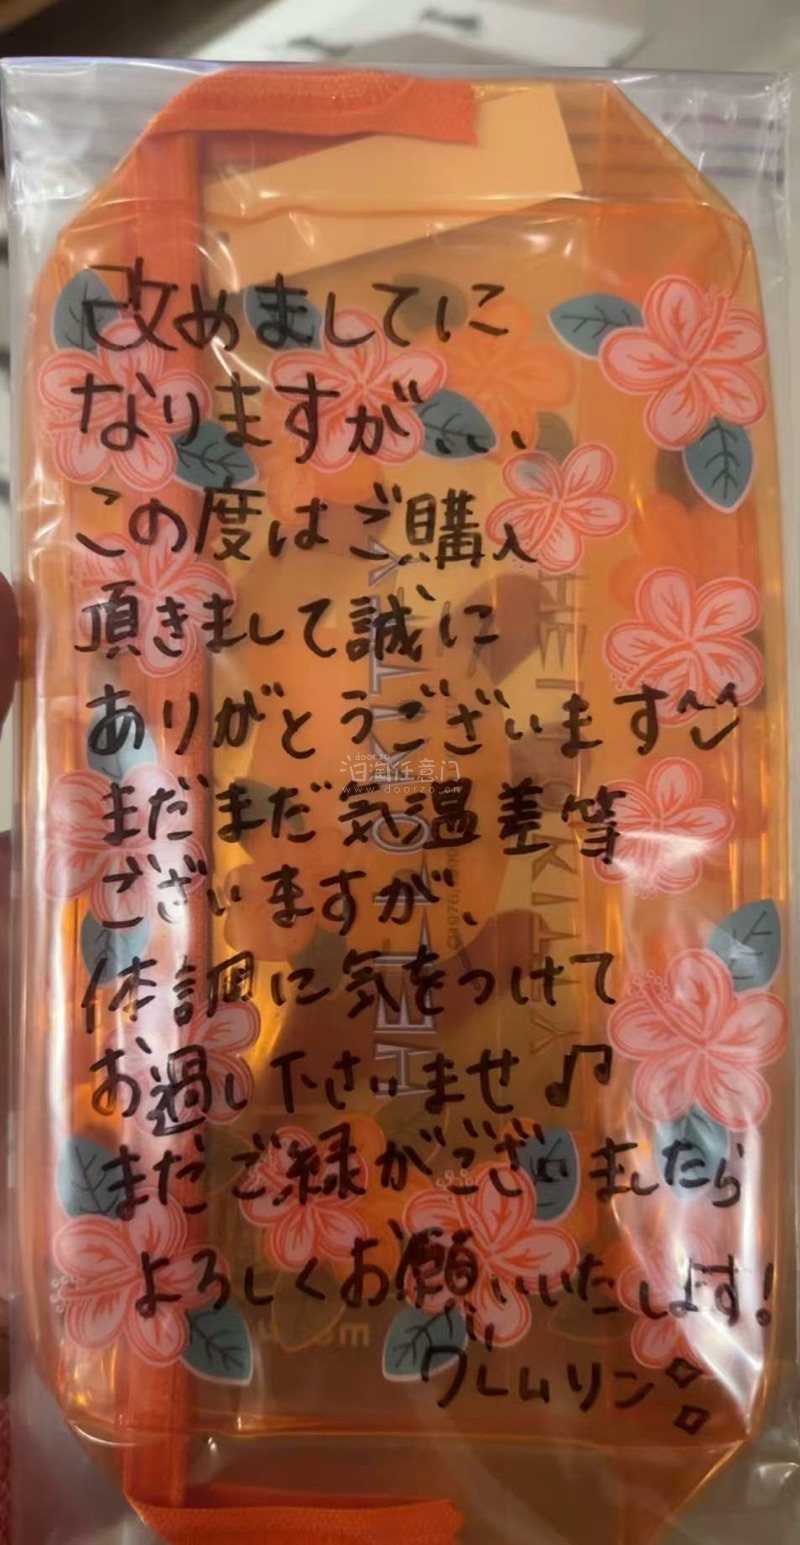 改めましてに
なりますが、、、
この度はご購入
頂きまして誠に
ありがとうございます
まだまだ気温差等
ございますが、
体調に気をつけて
お過し下さいませ♪
まだご緑がございましたら
よろしくお願いいたします!
グレムリン
HELLO KITTY
HELLO KITTY
©1976,
doorzo
日淘任意门
www.doorzo.cn